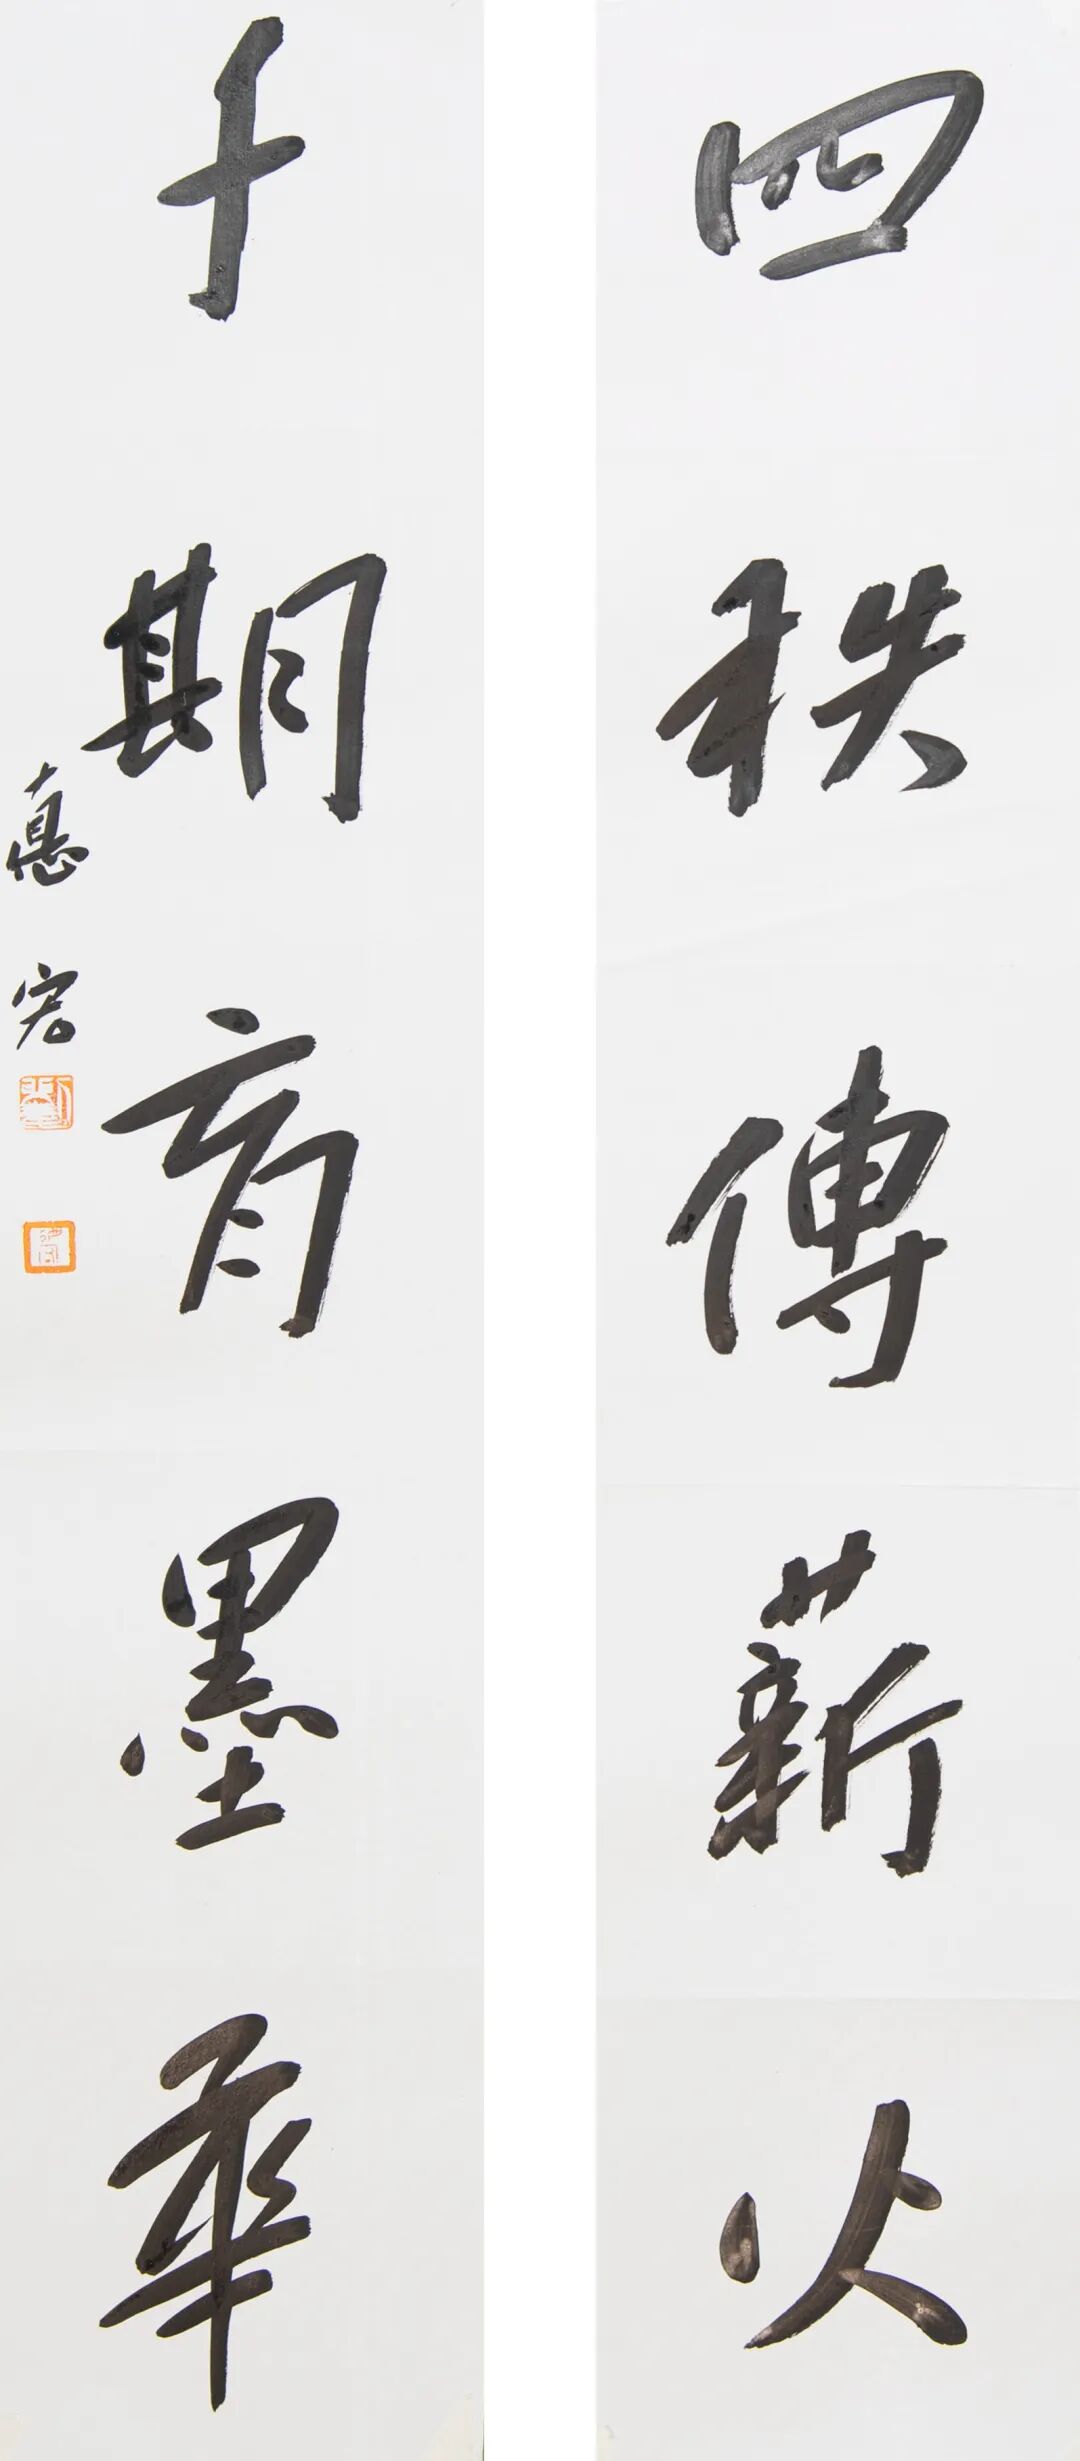 四秩傳薪火
十期育墨華
惪宏